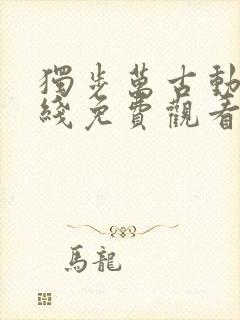 獨步萬古動
綫免費觀看
馬龍